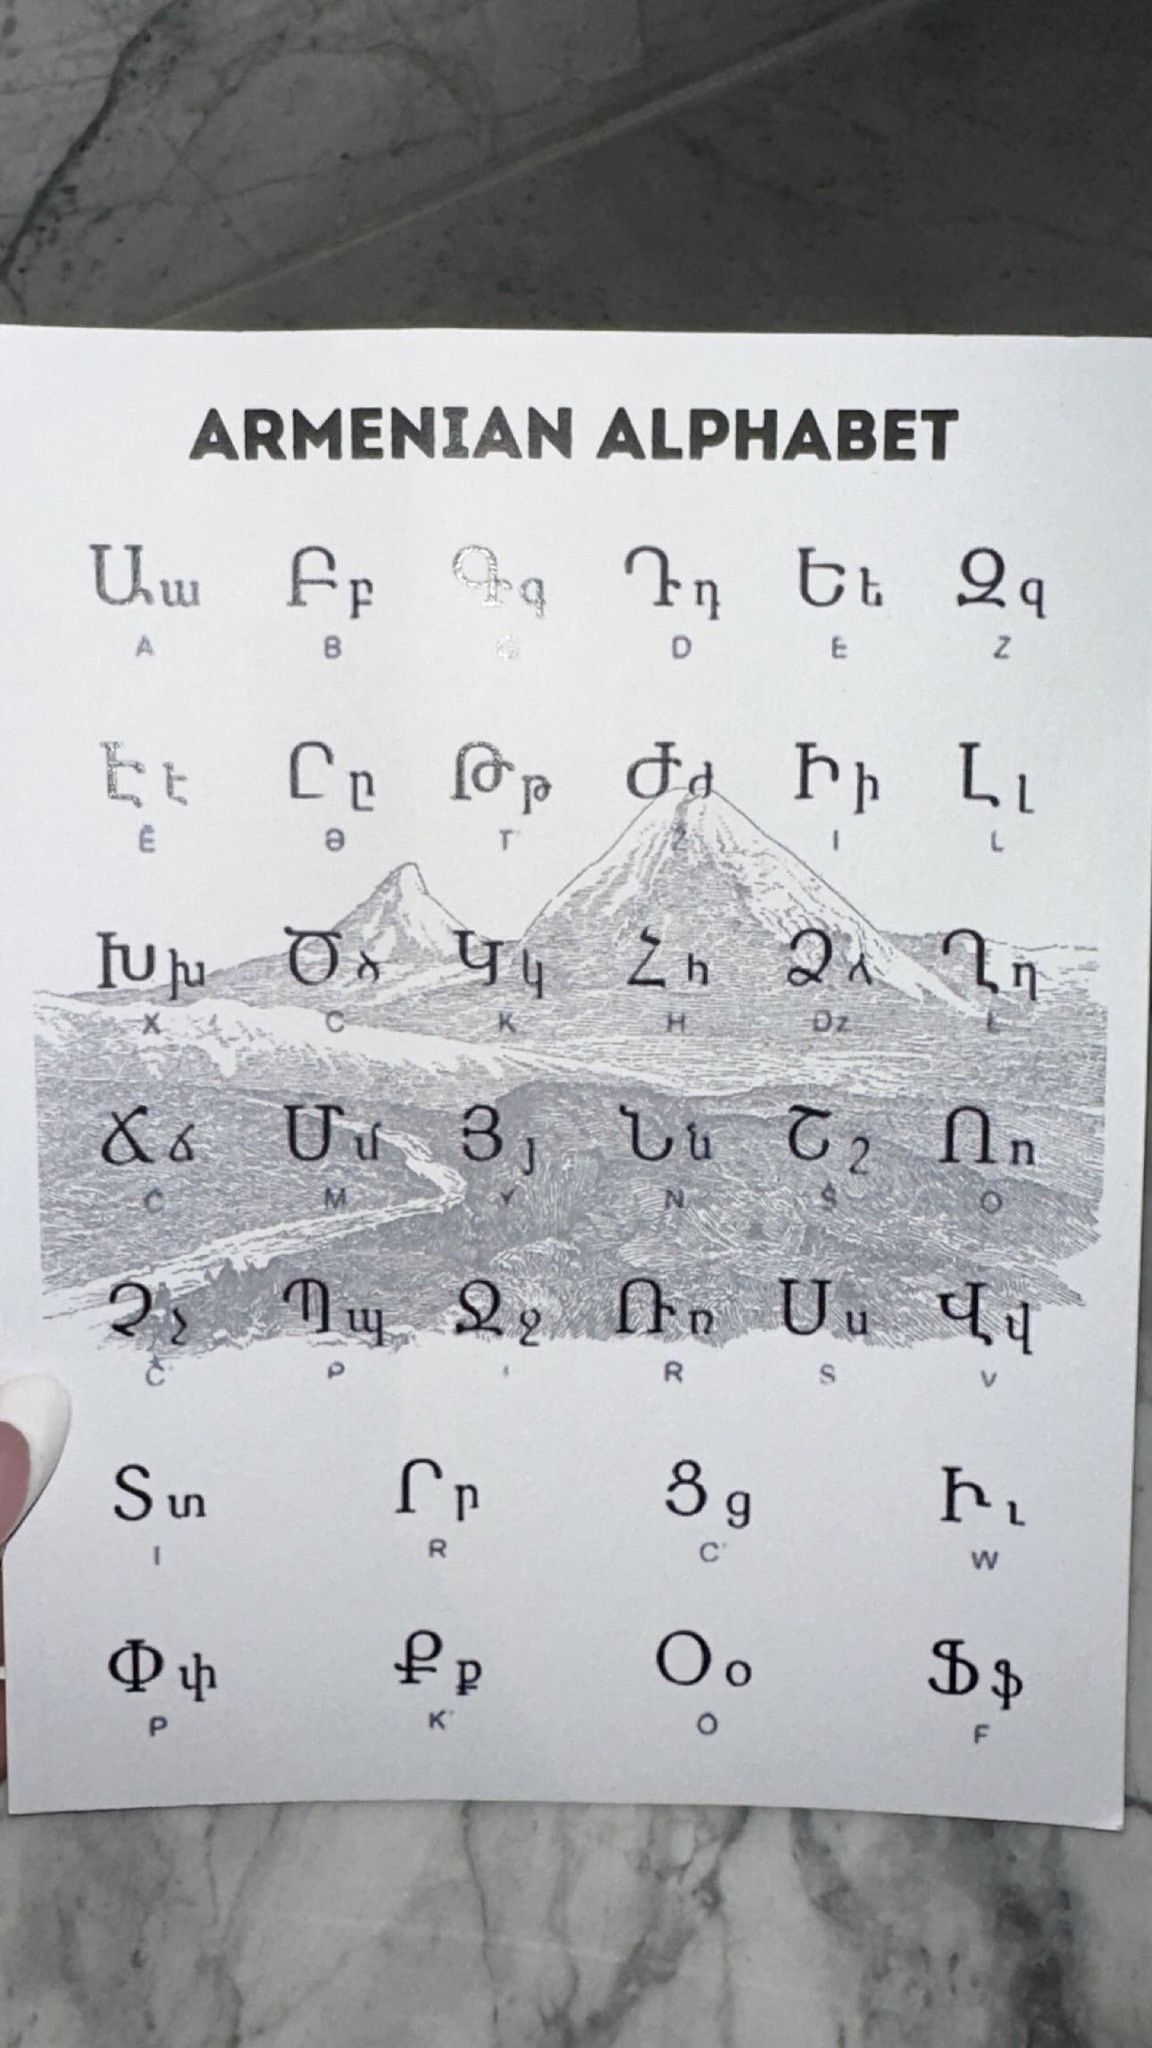 ARMENIAN ALPHABET
Աա Բբ Գգ Դդ Եե Զզ
A B G D E Z
Էէ Ըը Թթ Ժժ Իի Լլ
Ē Ə T' Ž I L
Խխ Ծծ Կկ Հհ Ձձ Ղղ
X C K H Dz Ł
Ճճ Մմ Յյ Նն Շշ Ոո
Č M Y N Š O
Չչ Պպ Ջջ Ռռ Սս Վվ
Č' P R S V
Տտ Րր Ցց Իւ
I R C' W
Փփ Քք Օօ Ֆֆ
P K' O F